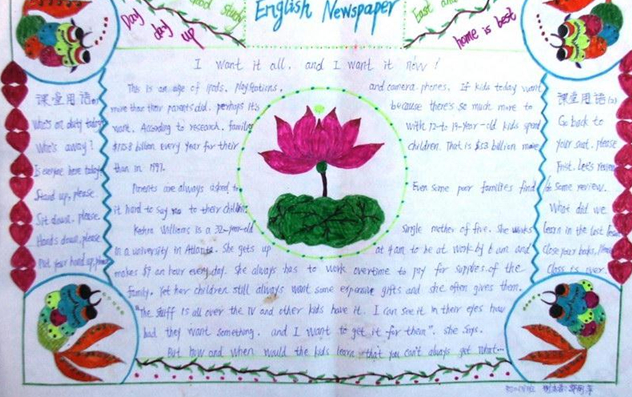 good study
Day day up
English Newspaper
East and
home is best
I want it all, and I want it now!
课堂用语
Who's on duty today
Who's away?
Is everyone here today
Stand up, please.
Sit down, please.
Hands down, please
Put your hand up, please
This is an age of ipods, PlayStations, and camera phones. If kids today want
more than their parents did, perhaps it's because there's so much more to
want. According to research, families with 12-to 14-year-old kids spend
billion every year for their children. That is $53 billion more
than in 1997.
Parents are always asked to Even some poor families find
it hard to say no to their children
Katrina Williams is a 32-year-old single mother of five. She works
in a university in Atlanta. She gets up at 4 am to be at work by 6 am and
makes $9 an hour every day. She always has to work overtime to pay for supplies of the
family. Yet her children still always want some expensive gifts and she often gives them.
"The stuff is all over the TV and other kids have it. I can see it in their eyes how
bad they want something, and I want to get it for them", she says.
But how and when would the kids learn that you can't always get what...
课堂用语
Go back to
your seat, please
First, Let's
do some review.
What did we
learn in the last
Close your books,
Class is over.